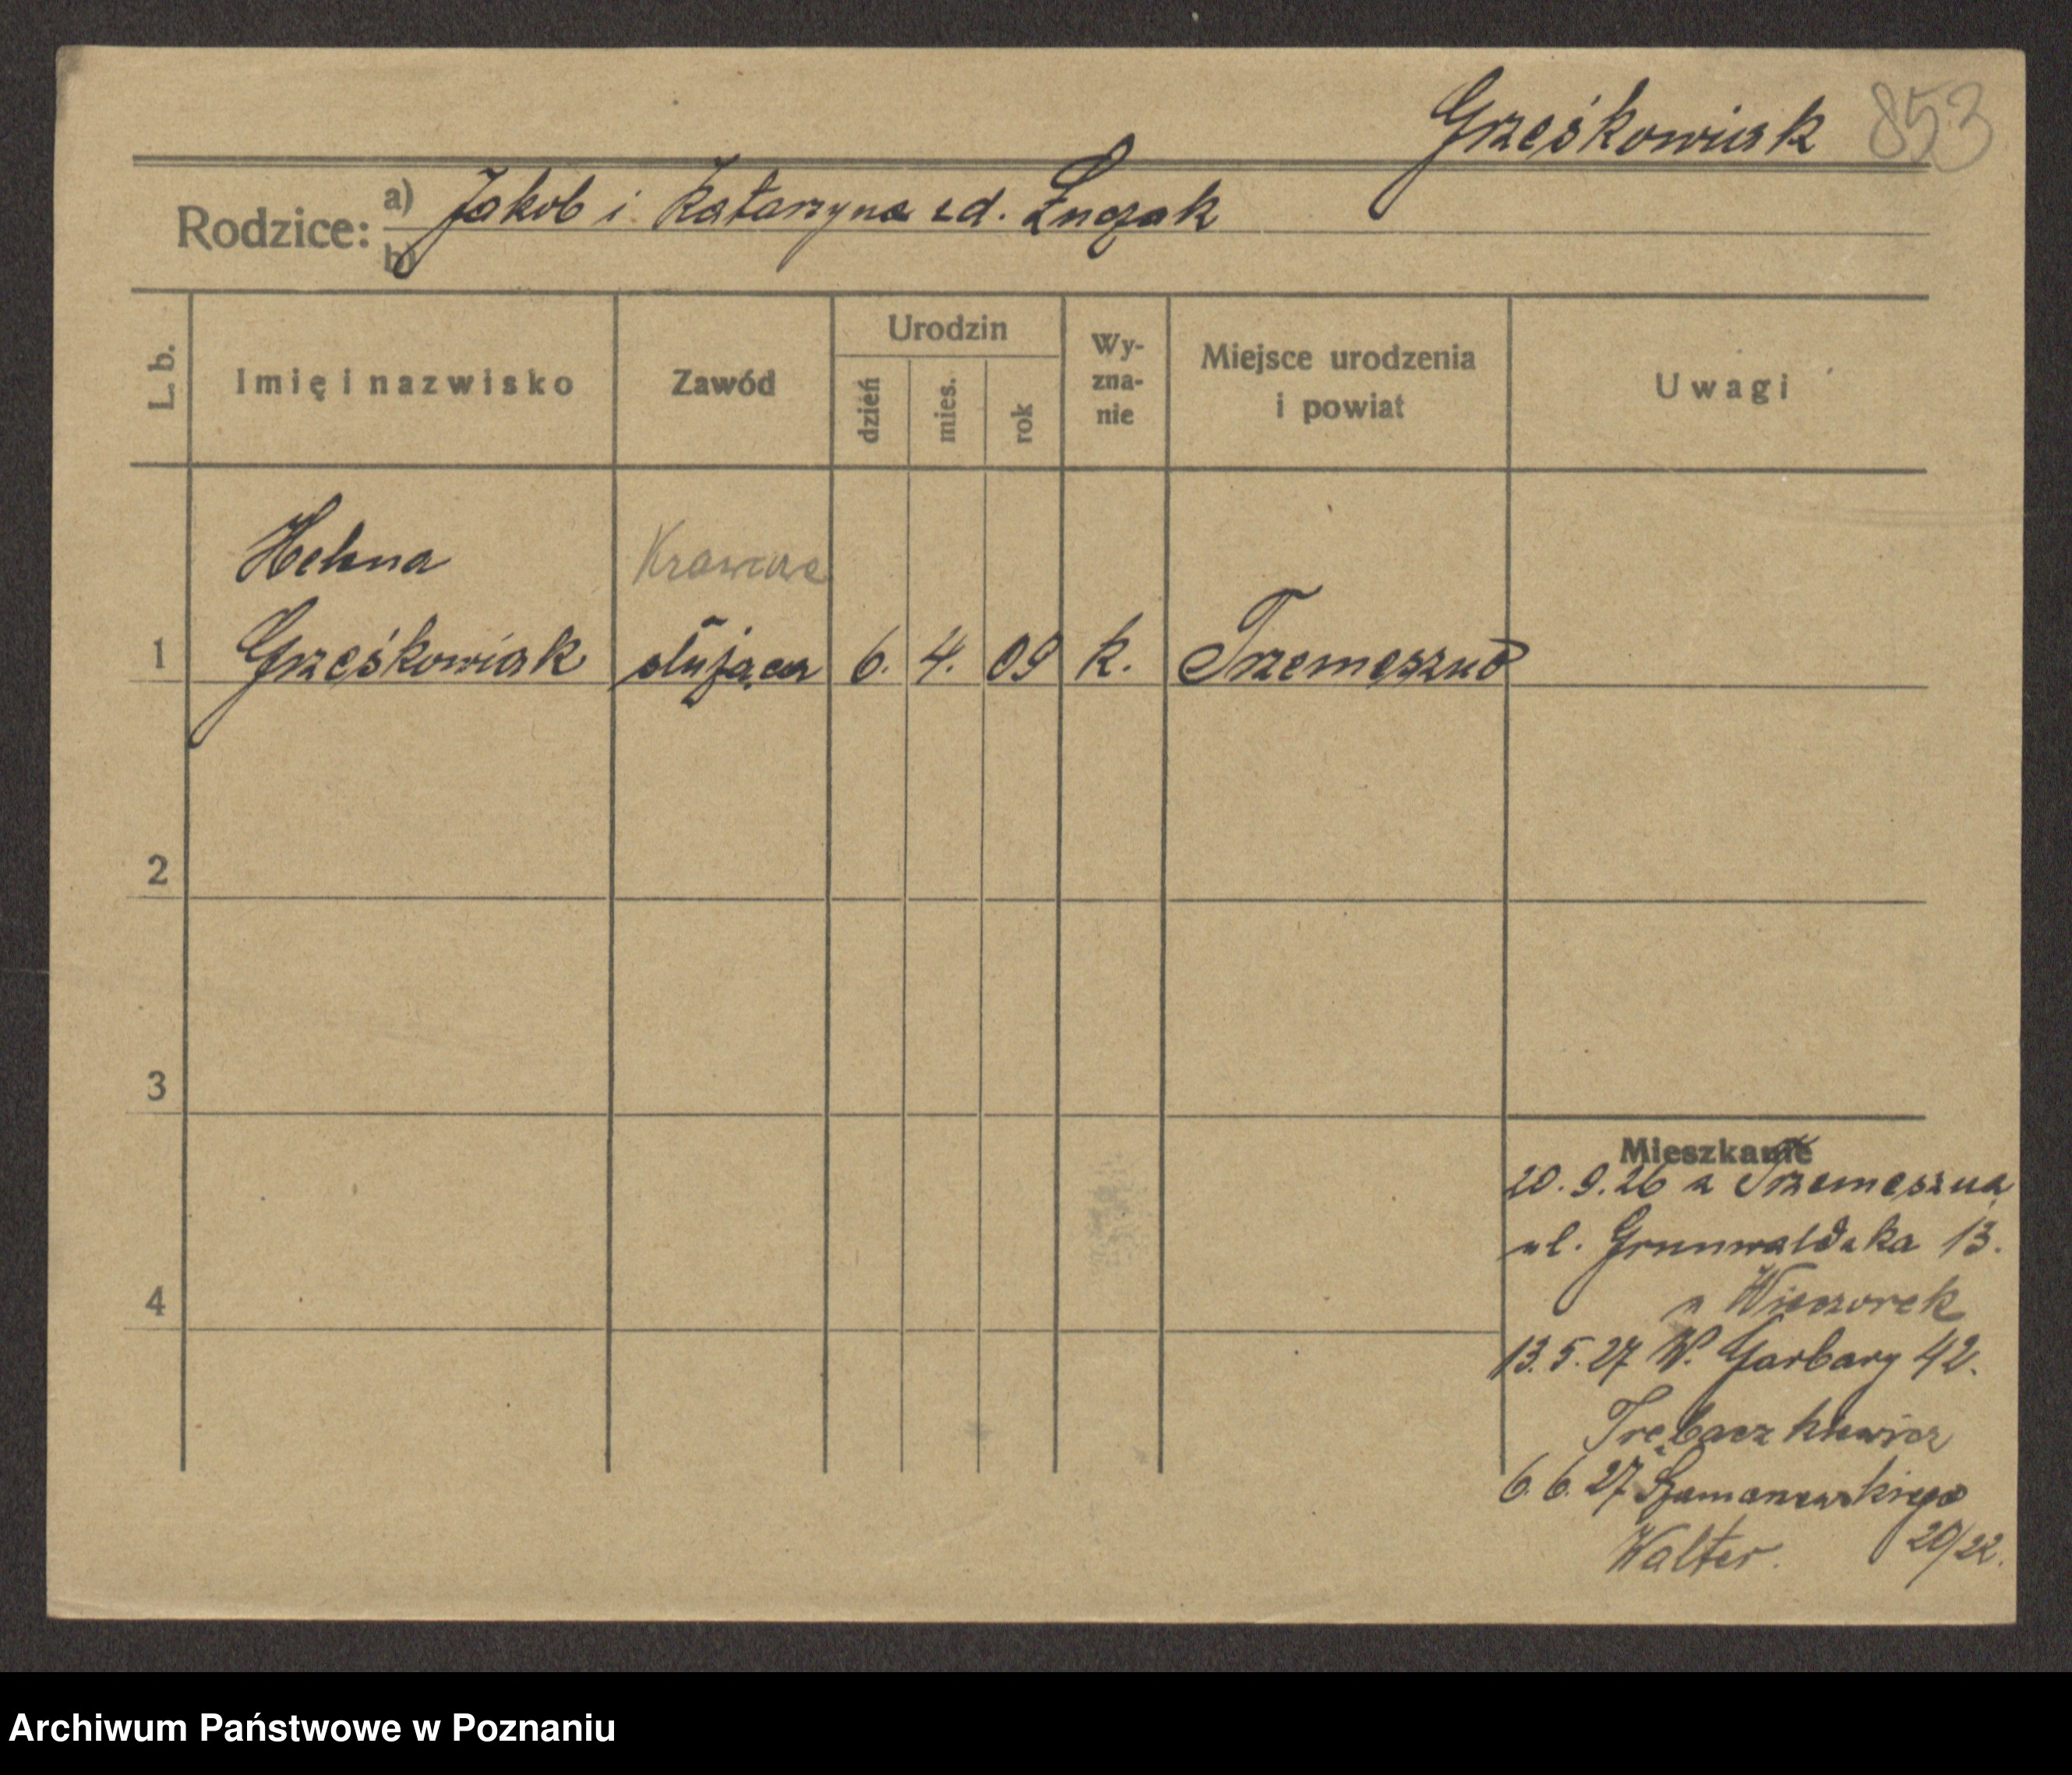 Grześkowiak 853
Rodzice: a) Jakob i Katarzyna zd. Łuczak
b)
L. b.
Imię i nazwisko
Zawód
Urodzin
dzień
mies.
rok
Wy-
zna-
nie
Miejsce urodzenia
i powiat
Uwagi
Helena
Krawcowa
1 Grześkowiak służąca 6. 4. 09 k. Trzemeszno
2
3
4
Mieszkanie
20.9.26 z Trzemeszna
ul. Grunwaldzka 13.
u Wieczorek
13.5.27 W. Garbary 42.
Trębaczkiewicz
6.6.27 Szamarzewskiego
20/22.
Walter.
Archiwum Państwowe w Poznaniu